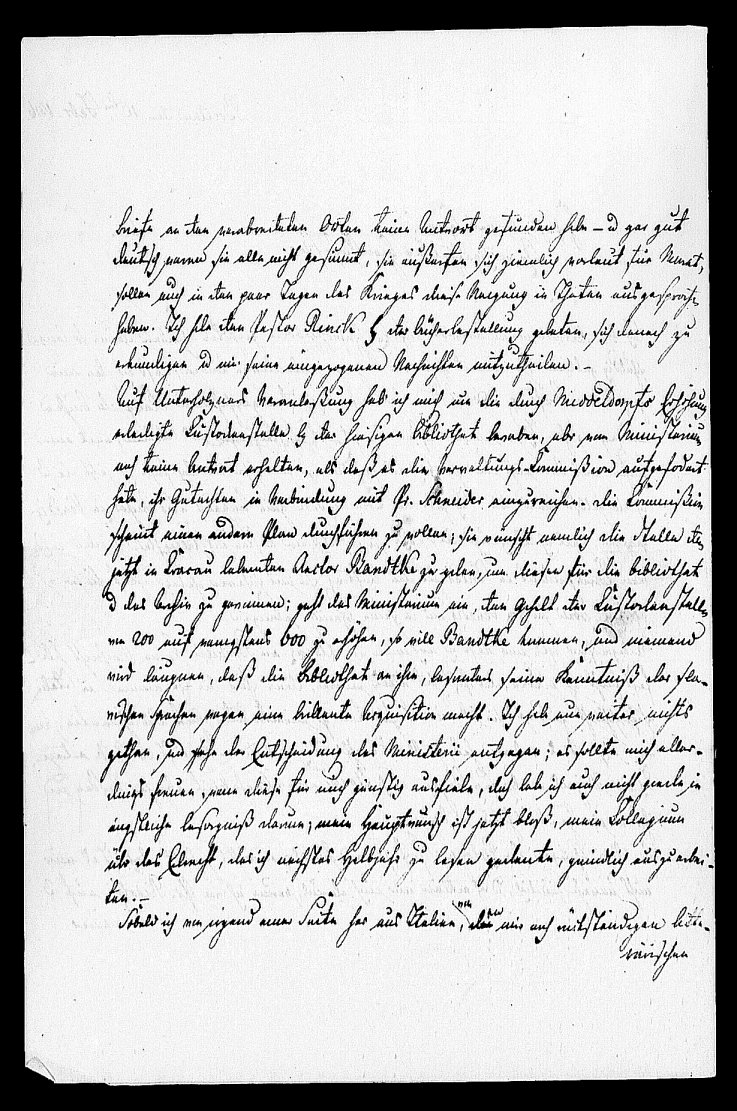 Briefe an den verabredeten Orten keine Antwort gefunden habe – u gar gut
deutsch waren sie alle nicht gesinnt, sie äußerten sich ziemlich vorlaut für Murat,
sollen auch in den paar Tagen des Krieges diese Neigung in Thaten ausgesproche
haben. Ich habe den Pastor Rinck bei der Bücherbestellung gebeten, sich danach zu
erkundigen u mir seine eingezogenen Nachrichten mitzutheilen. –
Auf Unterholzners Veranlaßung hab ich mich um die durch Middeldorpfs Erhöhung
erledigte Kustodenstelle bei der hiesigen Bibliothek beworben, aber vom Ministerium
noch keine Antwort erhalten, als daß es die Verwaltungs-Commißion aufgefodert
habe, ihr Gutachten in Verbindung mit Pr. Schneider einzureichen. Die Commißion
scheint einen andern Plan durchführen zu wollen; sie wünscht nemlich die Stelle dem
jetzt in Cracau lebenden Rector Bandtke zu geben, um diesen für die Bibliothek
u das Archiv zu gewinnen; geht das Ministerium ein, den Gehalt der Kustodenstelle
von 200 auf wenigstens 600 zu erhöhen, so will Bandtke kommen, und niemand
wird läugnen, daß die Bibliothek an ihm, besonders seiner Kenntniß der sla-
wischen Sprachen wegen eine brillante Acquisition macht. Ich habe nun weiter nichts
gethan, und sehe der Entscheidung des Ministerii entgegen; es sollte mich aller-
dings freuen, wenn diese für mich günstig ausfiele, doch lebe ich auch nicht grade in
ängstlicher Besorgniß darum; mein Hauptwunsch ist jetzt bloß, mein Collegium
über das Eherecht, das ich nächstes Halbjahr zu lesen gedenke, gründlich auszuarbei-
ten. –
Sobald ich von irgend einer Seite her aus Italien, von den mir noch rückständigen litte-
rärischen